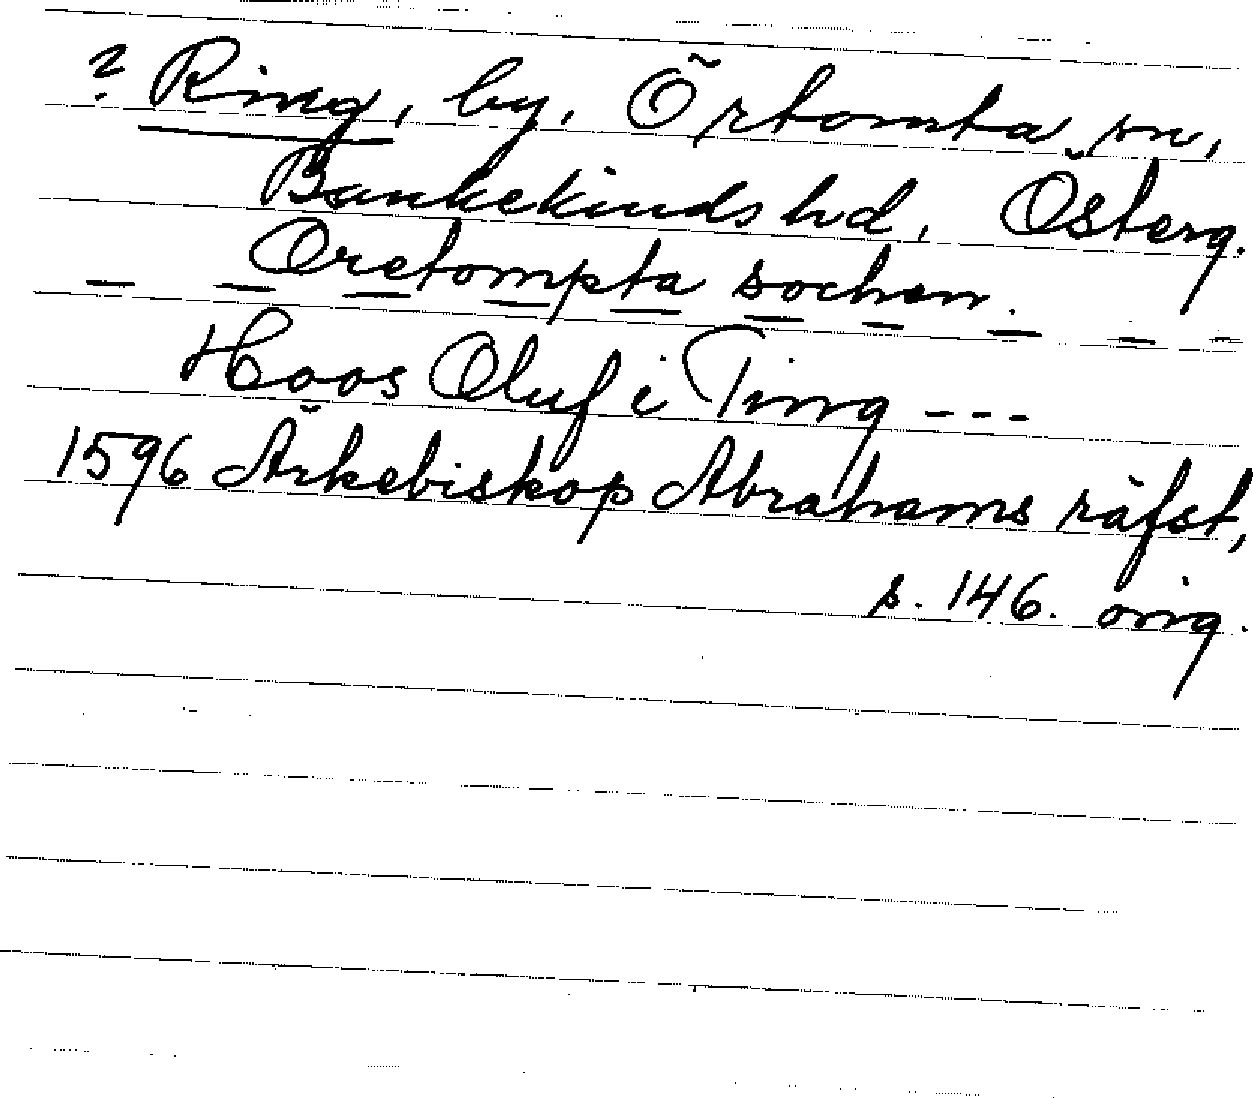 ? Ring, by, Örtomta sn,
Bankekinds hd, Österg.
Oretompta sochen.
Hoos Oluf i Ting ---
1596 Ärkebiskop Abrahams räfst,
s. 146. orig.